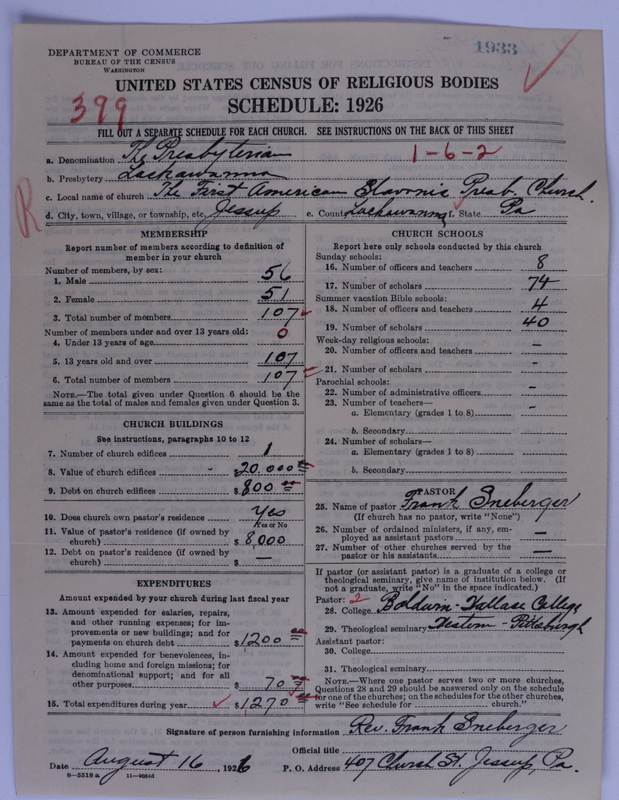 1933
DEPARTMENT OF COMMERCE
BUREAU OF THE CENSUS
WASHINGTON
UNITED STATES CENSUS OF RELIGIOUS BODIES
SCHEDULE: 1926
399
FILL OUT A SEPARATE SCHEDULE FOR EACH CHURCH. SEE INSTRUCTIONS ON THE BACK OF THIS SHEET
a. Denomination The Presbyterian 1-6-2
b. Presbytery Lackawanna
c. Local name of church The First American Slavonic Presb. Church.
R
d. City, town, village, or township, etc. Jessup e. County Lackawanna f. State Pa
MEMBERSHIP
Report number of members according to definition of
member in your church
Number of members, by sex:
1. Male 56
2. Female 51
3. Total number of members 107
Number of members under and over 13 years old:
4. Under 13 years of age 0
5. 13 years old and over 107
6. Total number of members 107
NOTE.—The total given under Question 6 should be the
same as the total of males and females given under Question 3.
CHURCH BUILDINGS
See instructions, paragraphs 10 to 12
7. Number of church edifices 1
8. Value of church edifices $20,000
9. Debt on church edifices $800
10. Does church own pastor's residence Yes
Yes or No
11. Value of pastor's residence (if owned by
church) $8,000
12. Debt on pastor's residence (if owned by
church) $ —
EXPENDITURES
Amount expended by your church during last fiscal year
13. Amount expended for salaries, repairs,
and other running expenses; for im-
provements or new buildings; and for
payments on church debt $1200
14. Amount expended for benevolences, in-
cluding home and foreign missions; for
denominational support; and for all
other purposes $ 70
15. Total expenditures during year $1270
CHURCH SCHOOLS
Report here only schools conducted by this church
Sunday schools:
16. Number of officers and teachers 8
17. Number of scholars 74
Summer vacation Bible schools:
18. Number of officers and teachers 4
19. Number of scholars 40
Week-day religious schools:
20. Number of officers and teachers —
21. Number of scholars -
Parochial schools:
22. Number of administrative officers -
23. Number of teachers—
a. Elementary (grades 1 to 8) -
b. Secondary
24. Number of scholars—
a. Elementary (grades 1 to 8)
b. Secondary
PASTOR
25. Name of pastor Frank Sneberger
(If church has no pastor, write "None")
26. Number of ordained ministers, if any, em-
ployed as assistant pastors —
27. Number of other churches served by the
pastor or his assistants —
If pastor (or assistant pastor) is a graduate of a college or
theological seminary, give name of institution below. (If
not a graduate, write "No" in the space indicated.)
Pastor: 2
28. College Boldwin-Wallace College
29. Theological seminary Western - Pittsburgh
Assistant pastor:
30. College
31. Theological seminary
NOTE.—Where one pastor serves two or more churches,
Questions 28 and 29 should be answered only on the schedule
for one of the churches; on the schedules for the other churches,
write "See schedule for church."
Signature of person furnishing information Rev. Frank Sneberger
Official title
Date August 16, 1926 P. O. Address 407 Church St. Jessup, Pa.
8—5518a 11—9084d